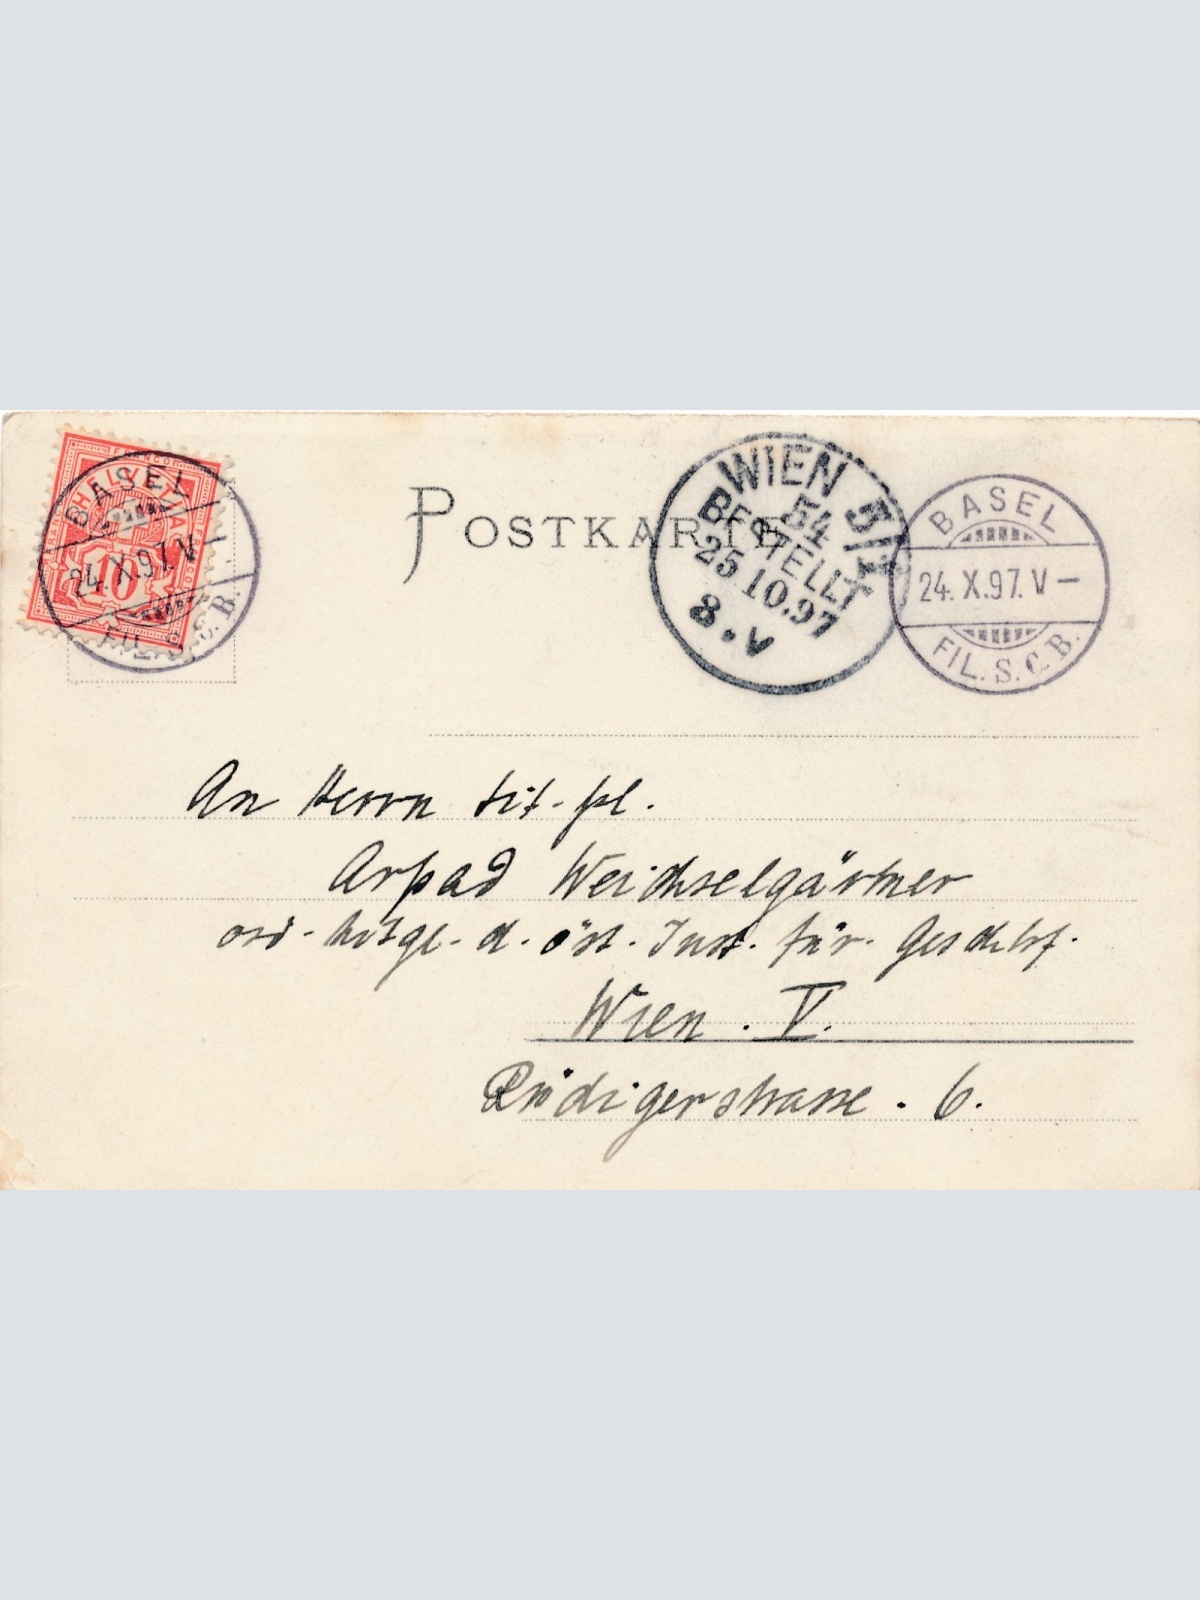 FRANCO
HELVETIA
10
BASEL
24. X.97. V
FIL. S.C.B.
POSTKARTE
WIEN 5/1
54
BESTELLT
25 10.97
8.V
BASEL
24. X.97. V —
FIL. S.C.B.
An Herrn tit. pl.
Arpad Weichselgärtner
ord. Mitgl. d. öst. Inst. für
Wien. V.
Rüdigerstrasse. 6.